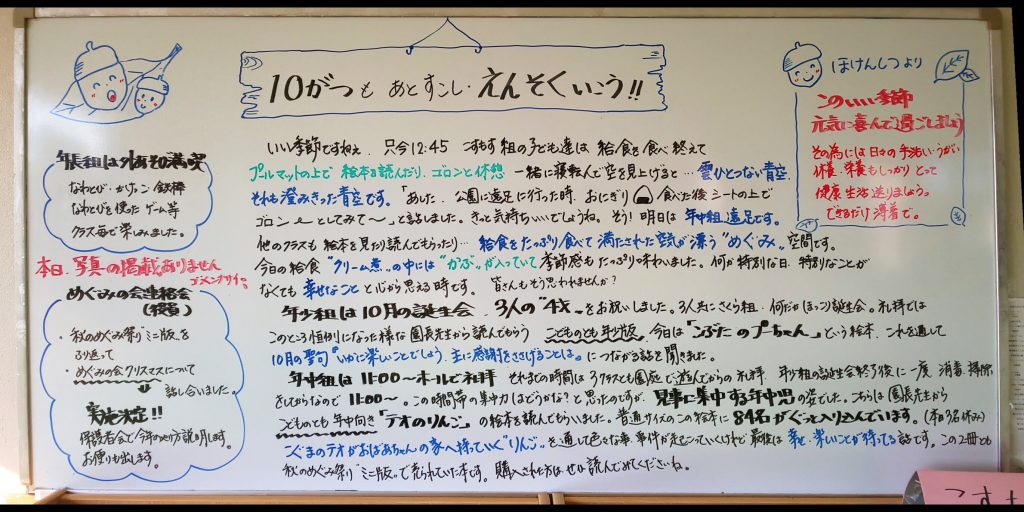 10がつも あとすこし・えんそくいこう!!
年長組は外あそび満喫
なわとび・かけっこ・鉄棒
なわとびを使ったゲーム等
クラス毎で楽しみました。
本日、写真の掲載ありません
ゴメンナサイ。
めぐみの会連絡会
(役員)
・秋のめぐみ祭り"ミニ版"を
ふり返って
・めぐみの会クリスマスについて
話し合いました。
実施決定!!
保護者会で今年のやり方説明します。
お便りも出します。
いい季節ですねぇ。只今12:45 こすもす組の子ども達は 給食を食べ終えて
プルマットの上で 絵本を読んだり、ゴロンと休憩 一緒に寝転んで空を見上げると… 雲ひとつない青空
それも澄みきった青空です。「あした、公園に遠足に行った時、おにぎり 食べた後シートの上で
ゴロンしてみて〜」と話しました。きっと気持ちいいでしょうね。そう!明日は 年中組 遠足です。
他のクラスも 絵本を見たり読んでもらったり… 給食をたっぷり食べて 満たされた空気が漂う"めぐみ"空間です。
今日の給食"クリーム煮"の中には"かぶ"が入っていて季節感もたっぷり味わいました。何か特別な日、特別なことが
なくても 幸せなこと と心から思える時です。 皆さんもそう思われませんか?
年少組は 10月の誕生会 3人の"4歳"をお祝いしました。3人共にさくら組・何だかほっこり誕生会。礼拝では
このところ恒例になった様な 園長先生から読んでもらう こどものとも年少版、今日は「こぶたのプーちゃん」という絵本、これを通して
10月の聖句"いかに楽しいことでしょう 主に感謝をささげることは。"につながる話を聞きました。
年中組は 11:00〜ホールで礼拝 それまでの時間は 3クラスとも園庭で遊んでからの礼拝 年少組の誕生会終了後に一度、消毒・掃除
をしてからなので 11:00〜。この時間帯の集中力はどうかな?と思ったのですが、見事に集中する年中組の姿でした。こちらは園長先生から
こどものとも年中向き「テオのりんご」の絵本を読んでもらいました。普通サイズのこの絵本に 84名がぐっと入り込んでいます。(本日3名休み)
"くまのテオがおばあちゃんの家へ持っていく"りんご"を通して色々な事、事件が起こっていくけれど 最後は 幸せ・楽しいことが待ってる話です。この2冊とも
秋のめぐみ祭り"ミニ版"で売られていた本です。購入された方は、ぜひ読んでみてくださいね。
ほけんしつより
このいい季節
元気に喜んで過ごしましょう
その為には日々の手洗い・うがい
休養・栄養もしっかりとって
健康生活送りましょう。
できるだけ薄着で。
こすも